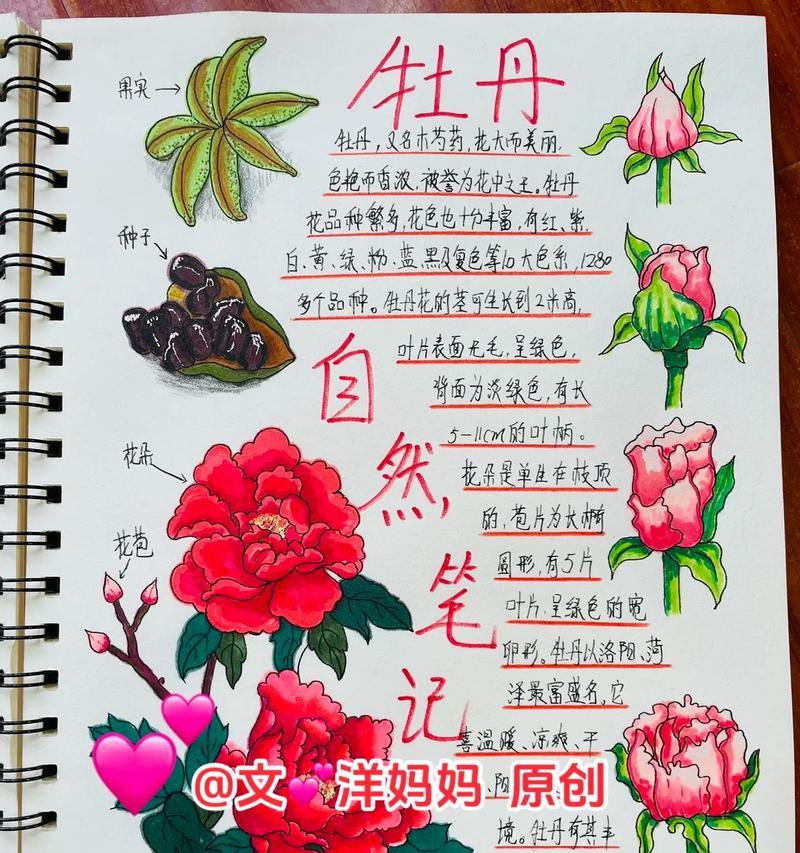 牡丹
果实
牡丹，又名木芍药，花大而美丽.
色艳而香浓，被誉为花中之王。牡丹
花品种繁多，花色也十分丰富，有红、紫、
种子
白、黄、绿、粉、蓝、黑及复色等10大色系，1280
多个品种。牡丹花的茎可生长到2米高，
自然笔记
叶片表面无毛，呈绿色，
背面为淡绿色，有长
5-11cm的叶柄。
花朵
花朵是单生在枝顶
的，苞片为长椭
花苞
圆形，有5片
叶片.呈绿色的宽
卵形。牡丹以洛阳、菏
泽最富盛名，它
喜温暖、凉爽、干
阳
境。牡丹有其丰
@文💕洋妈妈 原创